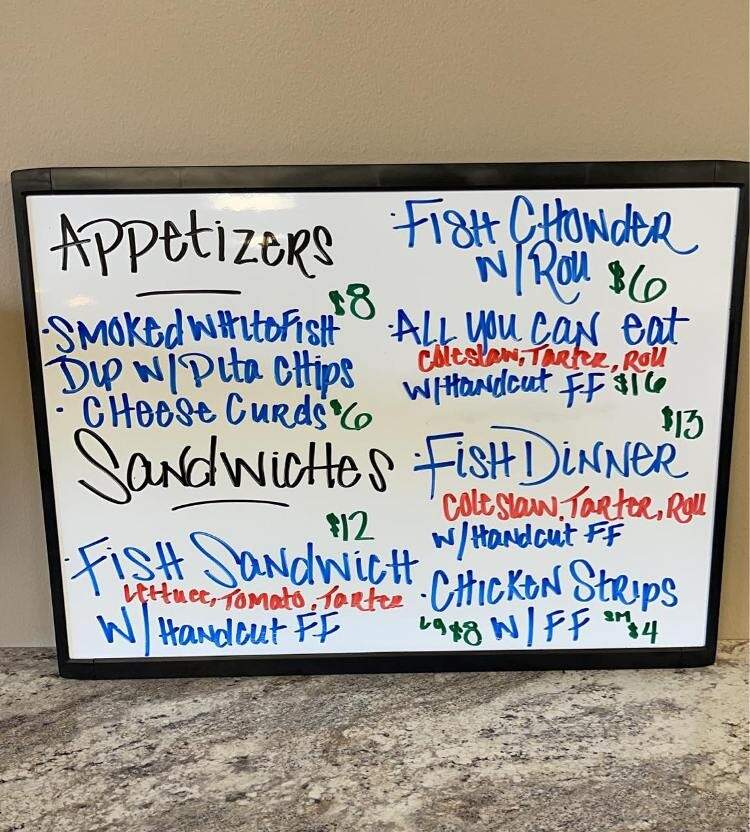 Appetizers
$8
· Smoked Whitefish
Dip w/Pita Chips
· Cheese Curds $6
Sandwiches
$12
· Fish Sandwich
Lettuce, Tomato, Tarter
w/ Handcut FF
· Fish Chowder
w/Roll $6
· All you can eat
Coleslaw, Tarter, Roll
w/Handcut FF $16
$13
· Fish Dinner
Coleslaw, Tarter, Roll
w/Handcut FF
· Chicken Strips
Lg $8 w/FF sm $4